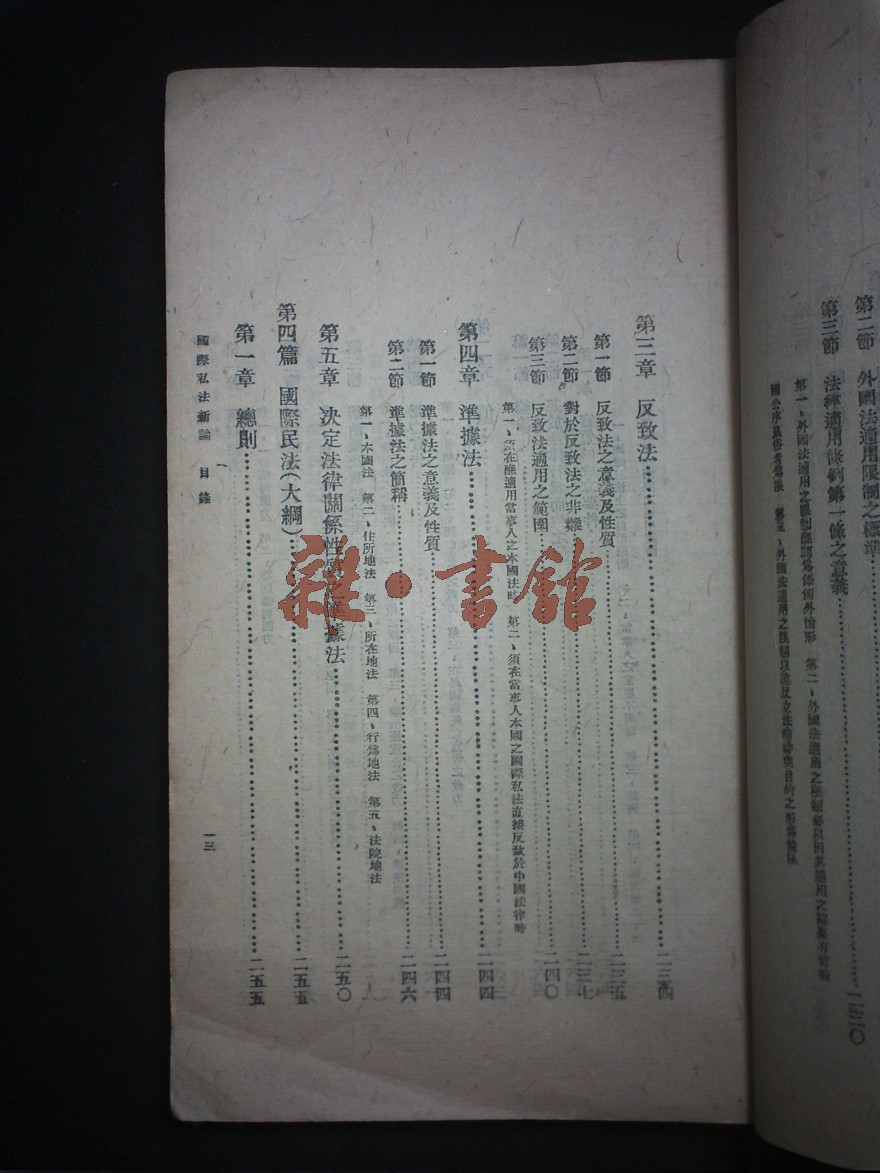 第二節 外國法適用限制之標準
第三節 法律適用條例第一條之意義……二三〇
第一、外國法適用之限制應認爲係例外情形 第二、外國法適用之限制必以因其適用之結果有背我
國公序良俗者爲限 第三、外國法適用之限制
第三章 反致法……二三四
第一節 反致法之意義及性質……二三五
第二節 對於反致法之非難……二三七
第三節 反致法適用之範圍……二四〇
第一、須在應適用當事人之本國法時 第二、須在當事人本國之國際私法直接反致於中國法律時
第四章 準據法……二四四
第一節 準據法之意義及性質……二四四
第二節 準據法之簡稱……二四六
第一、本國法 第二、住所地法 第三、所在地法 第四、行爲地法 第五、法院地法
第五章 決定法律關係性質之準據法……二五〇
第四篇 國際民法(大綱)……二五五
第一章 總則……二五五
國際私法新論 目錄
一三
雜·書館